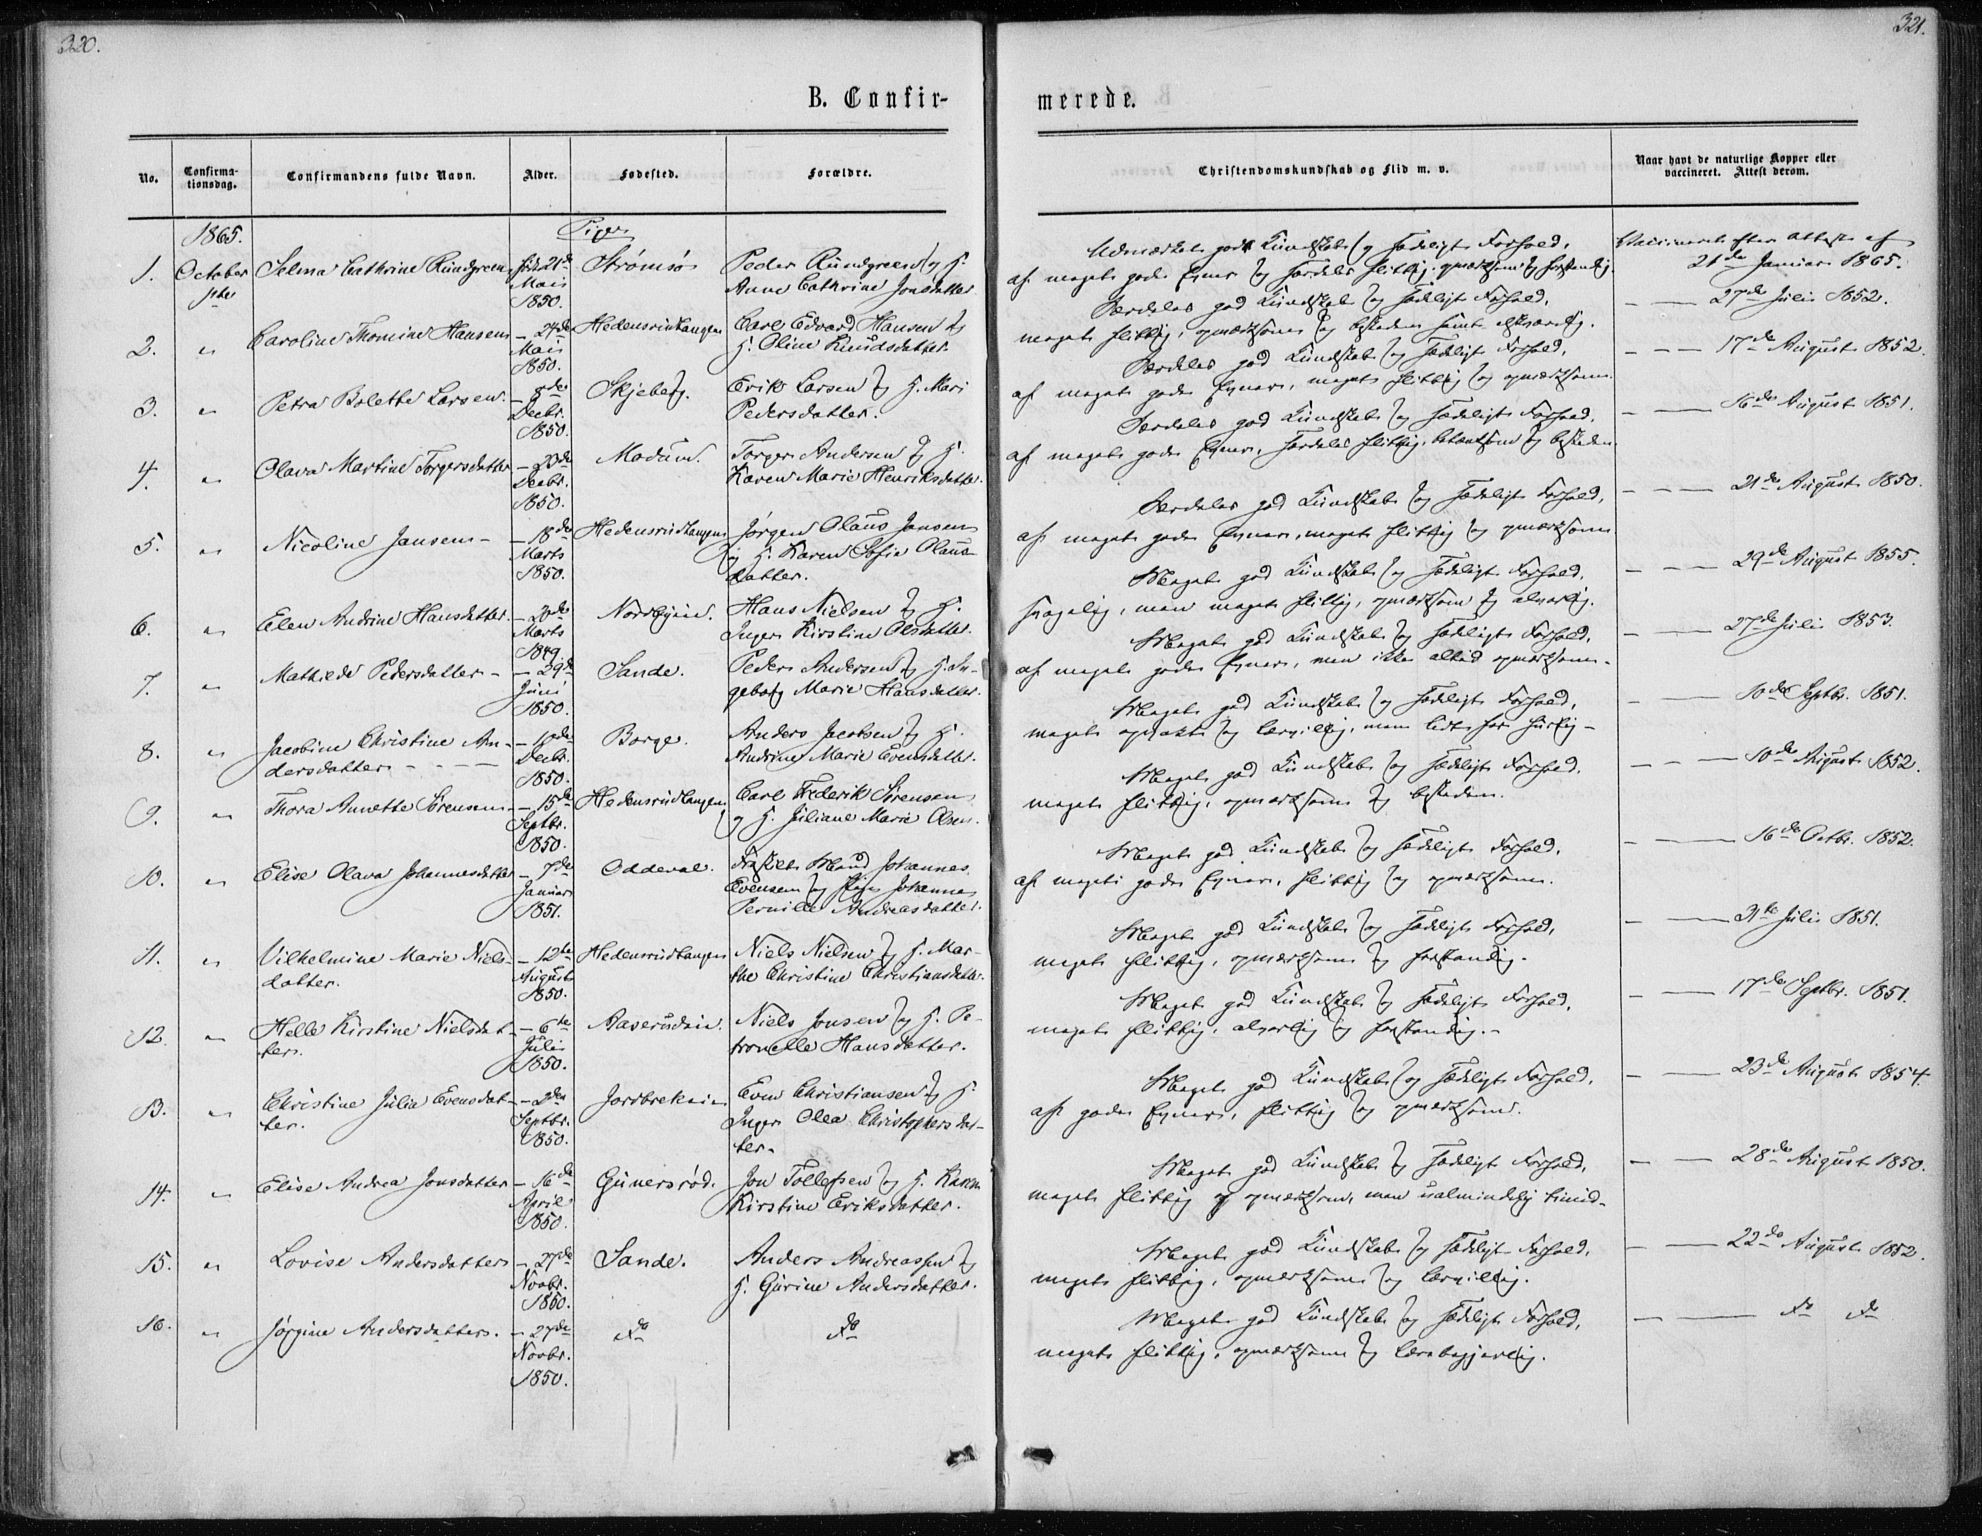 320.
B. Confir-
No.
Confirma-
tionsdag.
Confirmandens fulde Navn.
Alder.
Fødested.
Forældre.
1865.
Piger
1.
October
1ste
Selma Cathrine Rundgreen
fød 21de
Mai
1850.
Strømsø
Peder Rundgreen og H.
Anne Cathrine Jonsdatter
2.
"
Caroline Thomine Hansen
- 24de
Mai
1850.
Hedensrudtangen
Carl Edvard Hansen og
H. Oline Knudsdatter
3.
"
Petra Bolette Larsen
- 8de
Decbr.
1850.
Skjeberg.
Erik Larsen og H. Mari
Pedersdatter.
4.
"
Olava Martine Torgersdatter
- 23de
Decbr.
1850.
Modum.
Torger Andersen og H.
Karen Marie Henriksdatter.
5.
"
Nicoline Jansen -
- 18de
Marts
1850.
Hedensrudtangen
Jørgen Olaus Jansen
og H. Karen Sofie Olaus-
datter.
6.
"
Elen Andrine Hansdatter.
- 20de
Marts
1849.
Nordbyeie.
Hans Nielsen og H.
Inger Kirstine Olsdatter.
7.
"
Mathilde Pedersdatter -
- 29de
Juni
1850.
Sande.
Peder Andersen og H. In-
geborg Marie Hansdatter.
8.
"
Jacobine Christine An-
dersdatter - - -
- 10de
Decbr.
1850.
Borge.
Anders Jacobsen og H.
Andrine Marie Evensdatter.
9.
"
Thora Annette Sørensen
- 15de
Septbr.
1850.
Hedensrudtangen
Carl Frederik Sørensen
og H. Juliane Marie Olsen.
10.
"
Elise Olava Johannesdatter
- 7de
Januar
1851.
Oddeval.
Johannes
Evensen og Johanne
Pernille Andreasdatter.
11.
"
Vilhelmine Marie Niels-
datter.
- 12te
August
1850.
Hedensrudtangen
Niels Nielsen og H. Mar-
the Christine Christiansdatter.
12.
"
Helle Kirstine Nielsdat-
ter.
- 6te
Juli
1850.
Aaserudeie.
Niels Jonsen og H. Pe-
tronelle Hansdatter.
13.
"
Christine Julia Evensdat-
ter.
- 2den
Septbr.
1850.
Jordbrekeie
Even Christiansen og H.
Inger Olea Christophersdat-
ter.
14.
"
Elise Andrea Jonsdatter
- 16de
April
1850.
Gunersrød.
Jon Tollefsen og H. Karen
Kirstine Eriksdatter.
15.
"
Lovise Andersdatter
- 27de
Novbr.
1850.
Sande.
Anders Andreassen og
H. Gurine Andersdatter.
16.
"
Jørgine Andersdatter.
- 27de
Novbr.
1850.
Do
Do
321.
merede.
Christendomskundskab og Flid m. v.
Naar havt de naturlige Kopper eller
vaccineret. Attest derom.
Udmærket god Kundskab og sædeligt Forhold,
af meget gode Evner og særdeles flittig, opmærksom og forstandig.
Vaccineret efter Attest af
21de Januar 1865.
Særdeles god Kundskab og sædeligt Forhold,
meget flittig, opmærksom og beskeden samt elskværdig.
- - 27de Juli 1852.
Særdeles god Kundskab og sædeligt Forhold,
af meget gode Evner, meget flittig og opmærksom.
- - - 17de August 1852.
Særdeles god Kundskab og sædeligt Forhold,
af meget gode Evner, særdeles flittig, betænksom og beskeden
- - 16de August 1851.
Særdeles god Kundskab og sædeligt Forhold,
af meget gode Evner, meget flittig og opmærksom
- - - 21de August 1850.
Meget god Kundskab og sædeligt Forhold,
svagelig, men meget flittig, opmærksom og alvorlig.
- - - 29de August 1855.
Meget god Kundskab og sædeligt Forhold,
af meget gode Evner, men ikke altid opmærksom.
- - 27de Juli 1853.
Meget god Kundskab og sædeligt Forhold,
meget opvakt og lærvillig, men lidt for hurtig -
- - 10de Septbr. 1851.
Meget god Kundskab og sædeligt Forhold,
meget flittig, opmærksom og beskeden.
- - - 10de August 1852.
Meget god Kundskab og sædeligt Forhold,
af meget gode Evner, flittig og opmærksom.
- - 16de Octbr. 1852.
Meget god Kundskab og sædeligt Forhold,
meget flittig, opmærksom og forstandig.
- - 31te Juli 1851.
Meget god Kundskab og sædeligt Forhold,
meget flittig, alvorlig og forstandig. -
- - 17de Septbr. 1851.
Meget god Kundskab og sædeligt Forhold,
af gode Evner, flittig og opmærksom.
- - 23de August 1854.
Meget god Kundskab og sædeligt Forhold,
meget flittig og opmærksom, men ualmindelig timid.
- - 28de August 1850.
Meget god Kundskab og sædeligt Forhold,
meget flittig, opmærksom og lærvillig.
- - 22de August 1852.
Meget god Kundskab og sædeligt Forhold,
meget flittig, opmærksom og lærebegjærlig.
- - Do Do